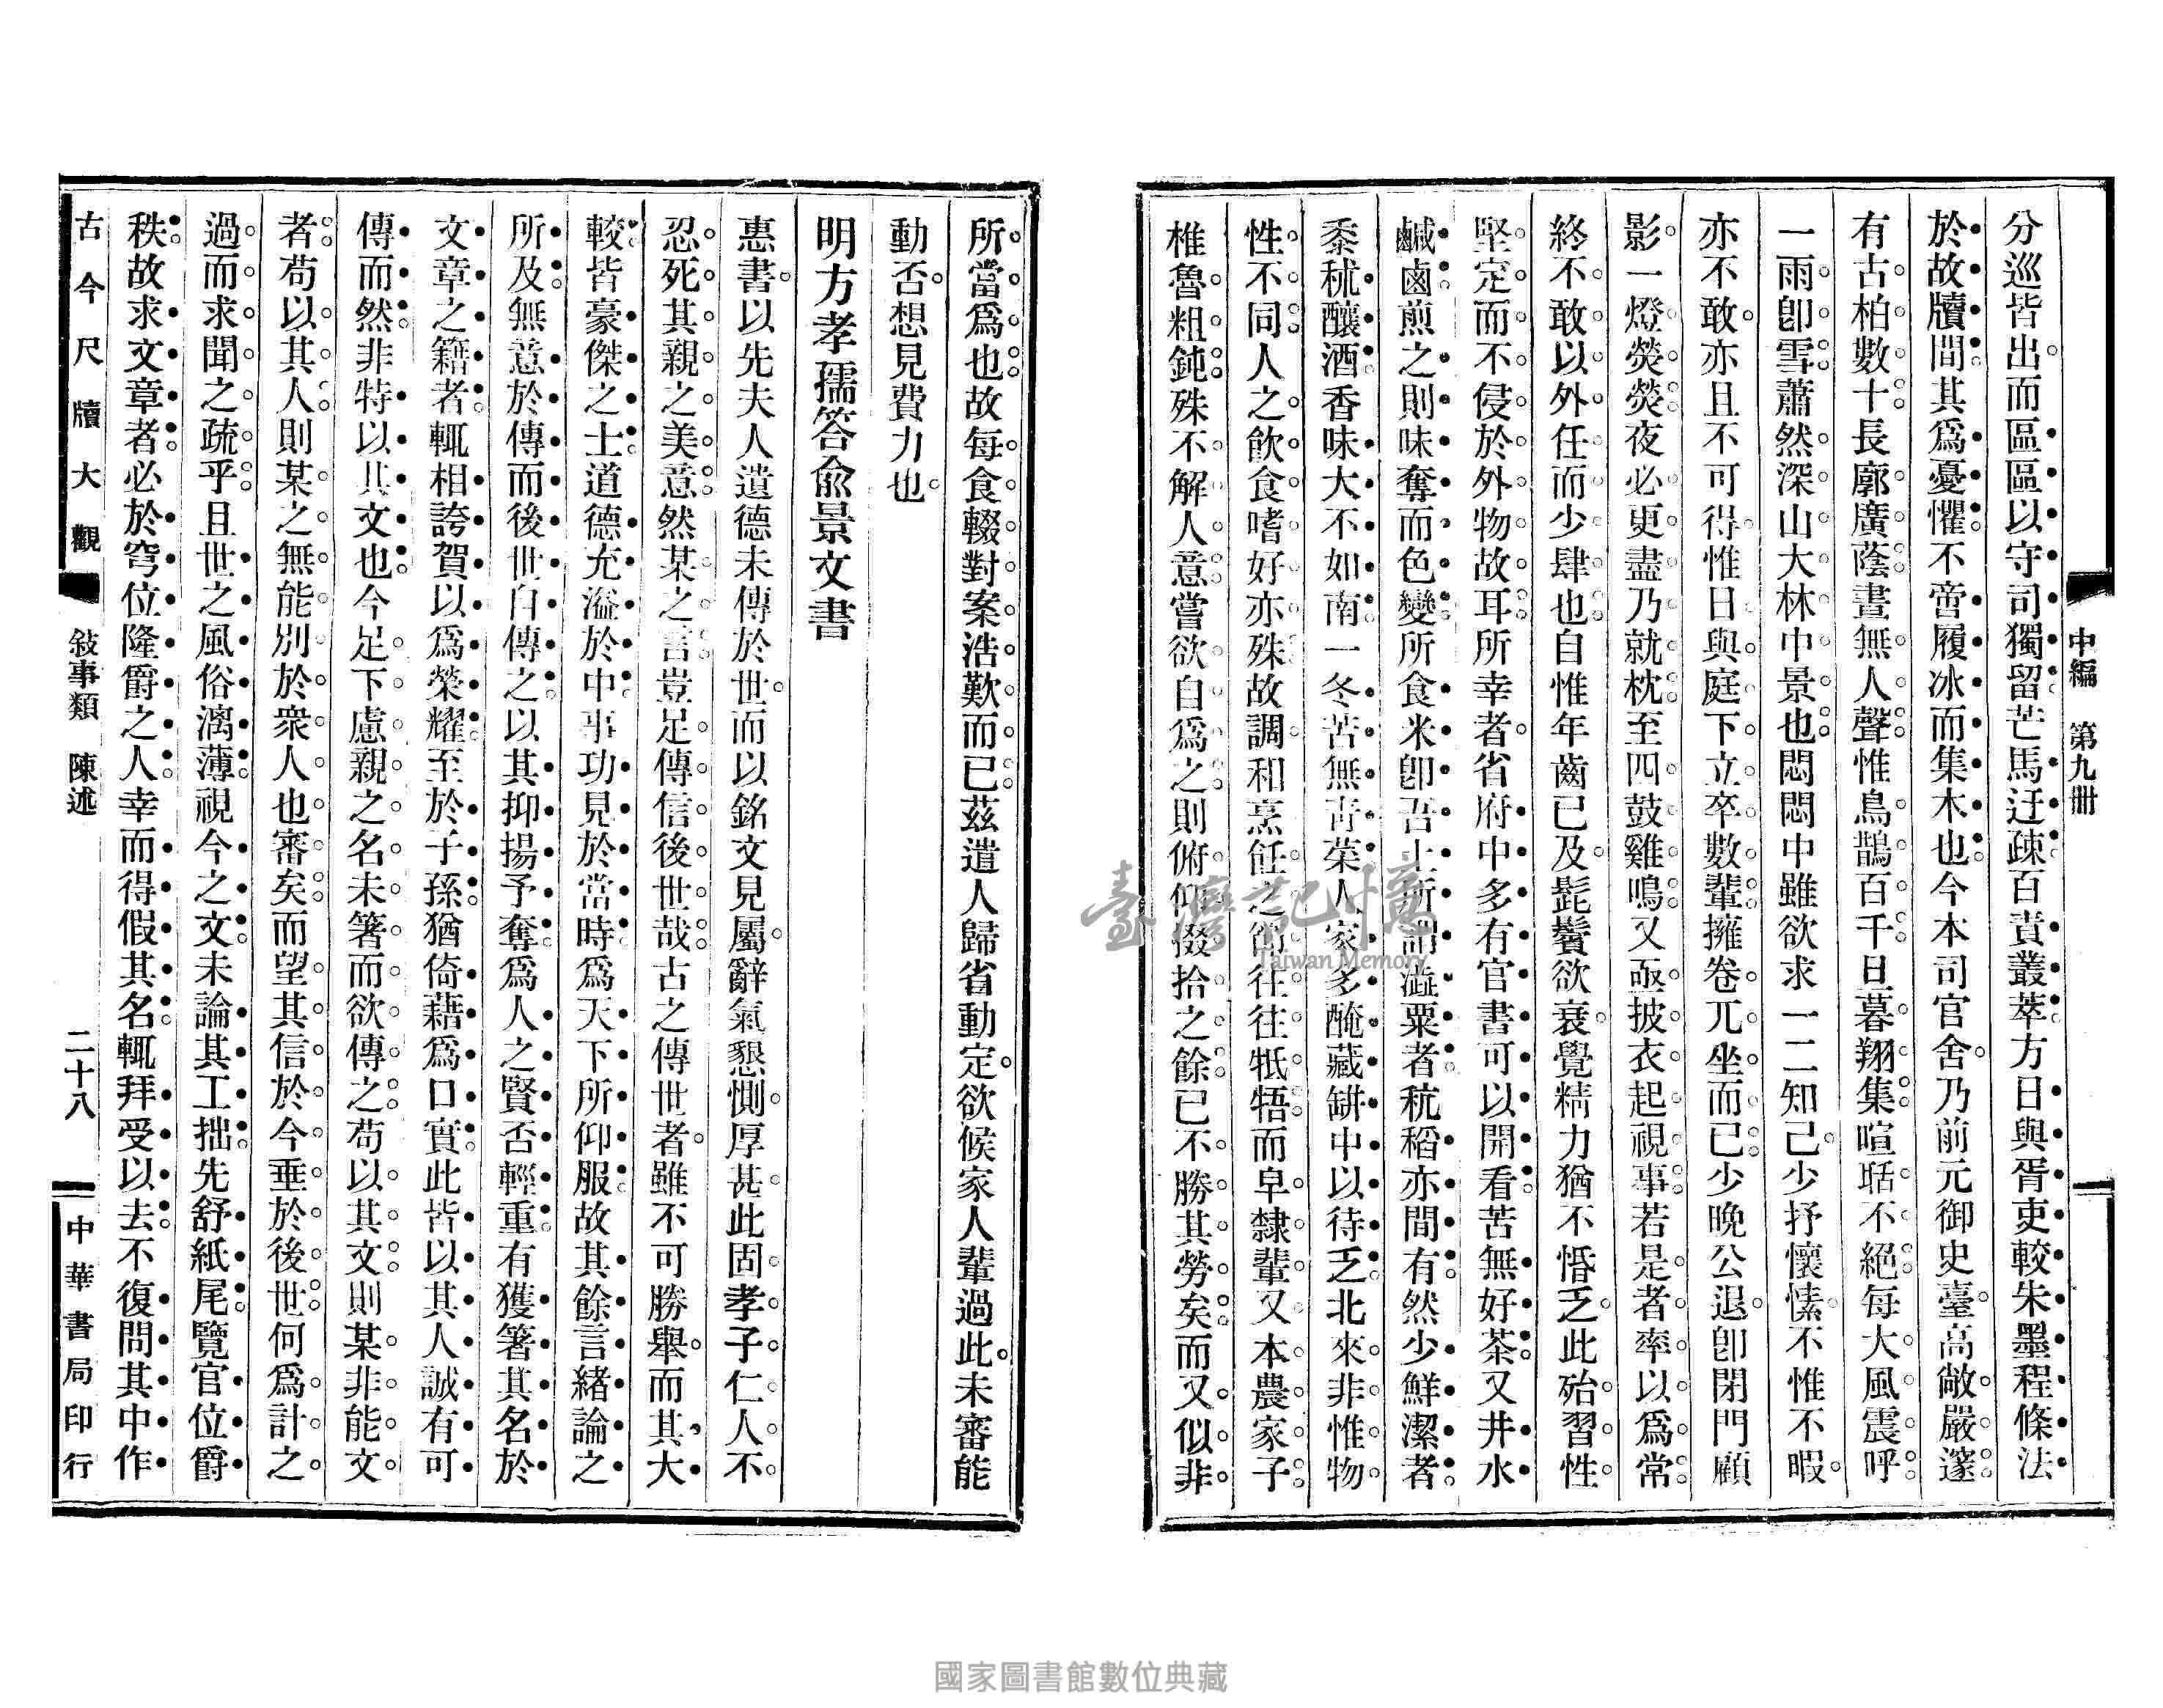 中編　第九冊
分巡皆出而區區以守司獨留芒馬迂疎百責叢萃方日與胥吏較朱墨程條法
於故牘間其爲憂懼不啻履冰而集木也今本司官舍乃前元御史臺高敞嚴邃
有古柏數十長廓廣蔭晝無人聲惟鳥鵲百千旦暮翔集喧聒不絕每大風震呼
一雨卽雪蕭然深山大林中景也悶悶中雖欲求一二知己少抒懷愫不惟不暇
亦不敢亦且不可得惟日與庭下立卒數輩擁卷兀坐而已少晚公退卽閉門顧
影一燈熒熒夜必更盡乃就枕至四鼓雞鳴又亟披衣起視事若是者率以爲常
終不敢以外任而少肆也自惟年齒已及髭鬢欲衰覺精力猶不惛乏此殆習性
堅定而不侵於外物故耳所幸者省府中多有官書可以開看苦無好茶又井水
鹹鹵煎之則味奪而色變所食米卽吾土所謂澁粟者秔稻亦間有然少鮮潔者
黍秫釀酒香味大不如南一冬苦無靑菜人家多醃藏缾中以待乏北來非惟物
性不同人之飲食嗜好亦殊故調和烹飪之節往往牴牾而皁隸輩又本農家子
椎魯粗鈍殊不解人意嘗欲自爲之則俯仰掇拾之餘已不勝其勞矣而又似非
所當爲也故每食輟對案浩歎而已茲遣人歸省動定欲候家人輩過此未審能
動否想見費力也
明方孝孺答俞景文書
惠書以先夫人遺德未傳於世而以銘文見屬辭氣懇惻厚甚此固孝子仁人不
忍死其親之美意然某之言豈足傳信後世哉古之傳世者雖不可勝舉而其大
較皆豪傑之士道德充溢於中事功見於當時爲天下所仰服故其餘言緒論之
所及無意於傳而後世自傳之以其抑揚予奪爲人之賢否輕重有獲箸其名於
文章之籍者輒相誇賀以爲榮耀至於子孫猶倚藉爲口實此皆以其人誠有可
傳而然非特以其文也今足下慮親之名未箸而欲傳之苟以其文則某非能文
者苟以其人則某之無能別於衆人也審矣而望其信於今垂於後世何爲計之
過而求聞之疏乎且世之風俗漓薄視今之文未論其工拙先舒紙尾覽官位爵
秩故求文章者必於穹位隆爵之人幸而得假其名輒拜受以去不復問其中作
古今尺牘大觀　敍事類　陳述　二十八　中華書局印行
臺灣記憶
Taiwan Memory
國家圖書館數位典藏